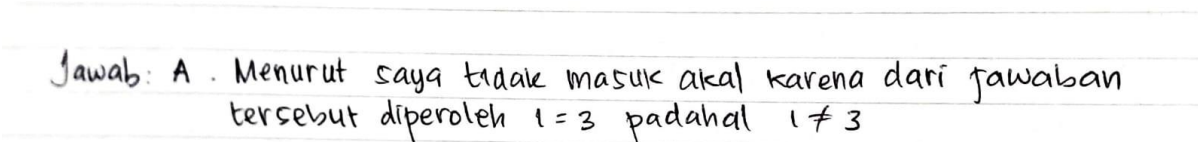 Jawab: A. Menurut saya tidak masuk akal karena dari jawaban
tersebut diperoleh 1 = 3 padahal 1 ≠ 3